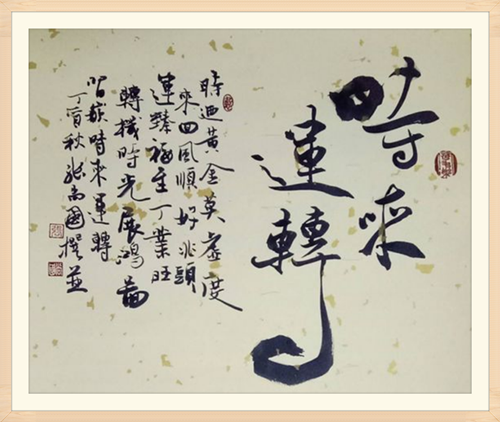 時來
運轉
時迎黃金莫虛度
來回風順好兆頭
運臻福至丁業旺
轉機時光展鴻圖
嵌時來運轉
丁酉秋張尚國撰並